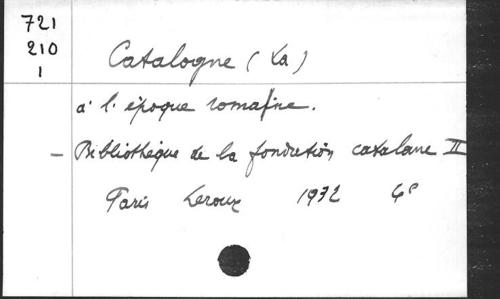 721
210
1
Catalogne (La)
a l'époque romaine.
- Bibliothèque de la fondation catalane II
Paris Leroux 1932 4°